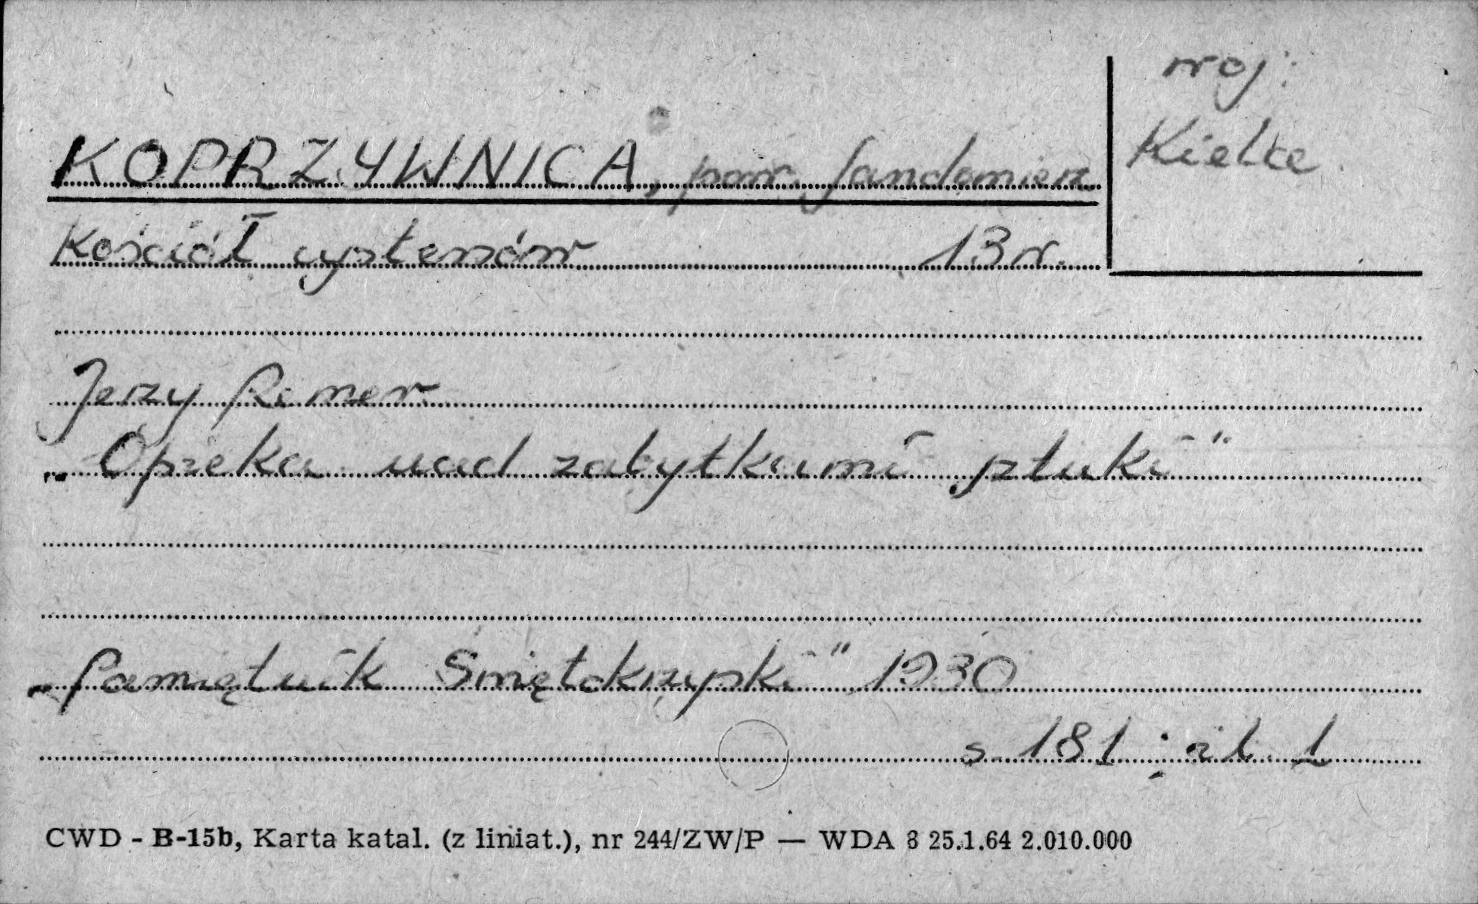 woj:
Kielce
KOPRZYWNICA, pow. Sandomierz
Kościół cystersów 13 w.
Jerzy Remer
„Opieka nad zabytkami sztuki"
„Pamiętnik Świętokrzyski" 1930
s. 181; il. 1
CWD - B-15b, Karta katal. (z liniat.), nr 244/ZW/P — WDA 8 25.1.64 2.010.000